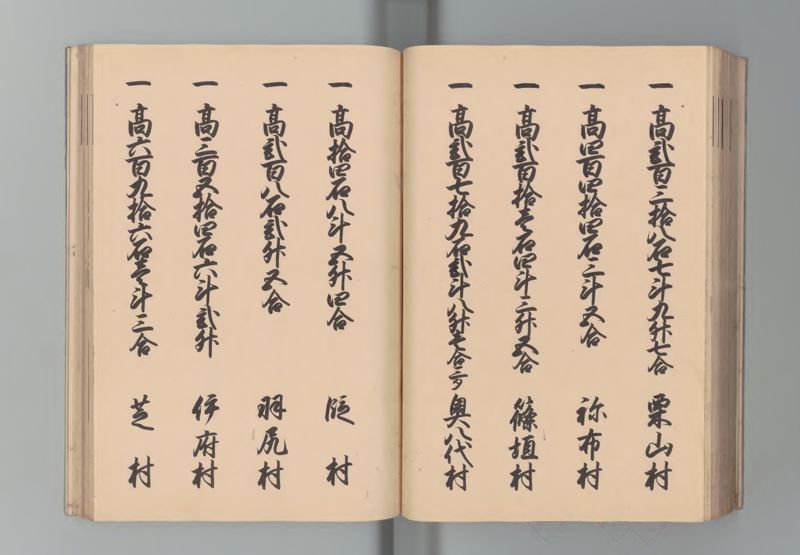 一高弐百三拾八石七斗九升七合 栗山村
一高四百四拾四石三斗五合 祢布村
一高弐百拾壱石四斗三升五合 篠垣村
一高弐百七拾九石弐斗八升七合 奥八代村
一高拾四石八斗五升四合 村
一高弐百八石弐升五合 羽尻村
一高三百五拾四石六斗弐升 伊府村
一高六百九拾六石壱斗三合 芝村